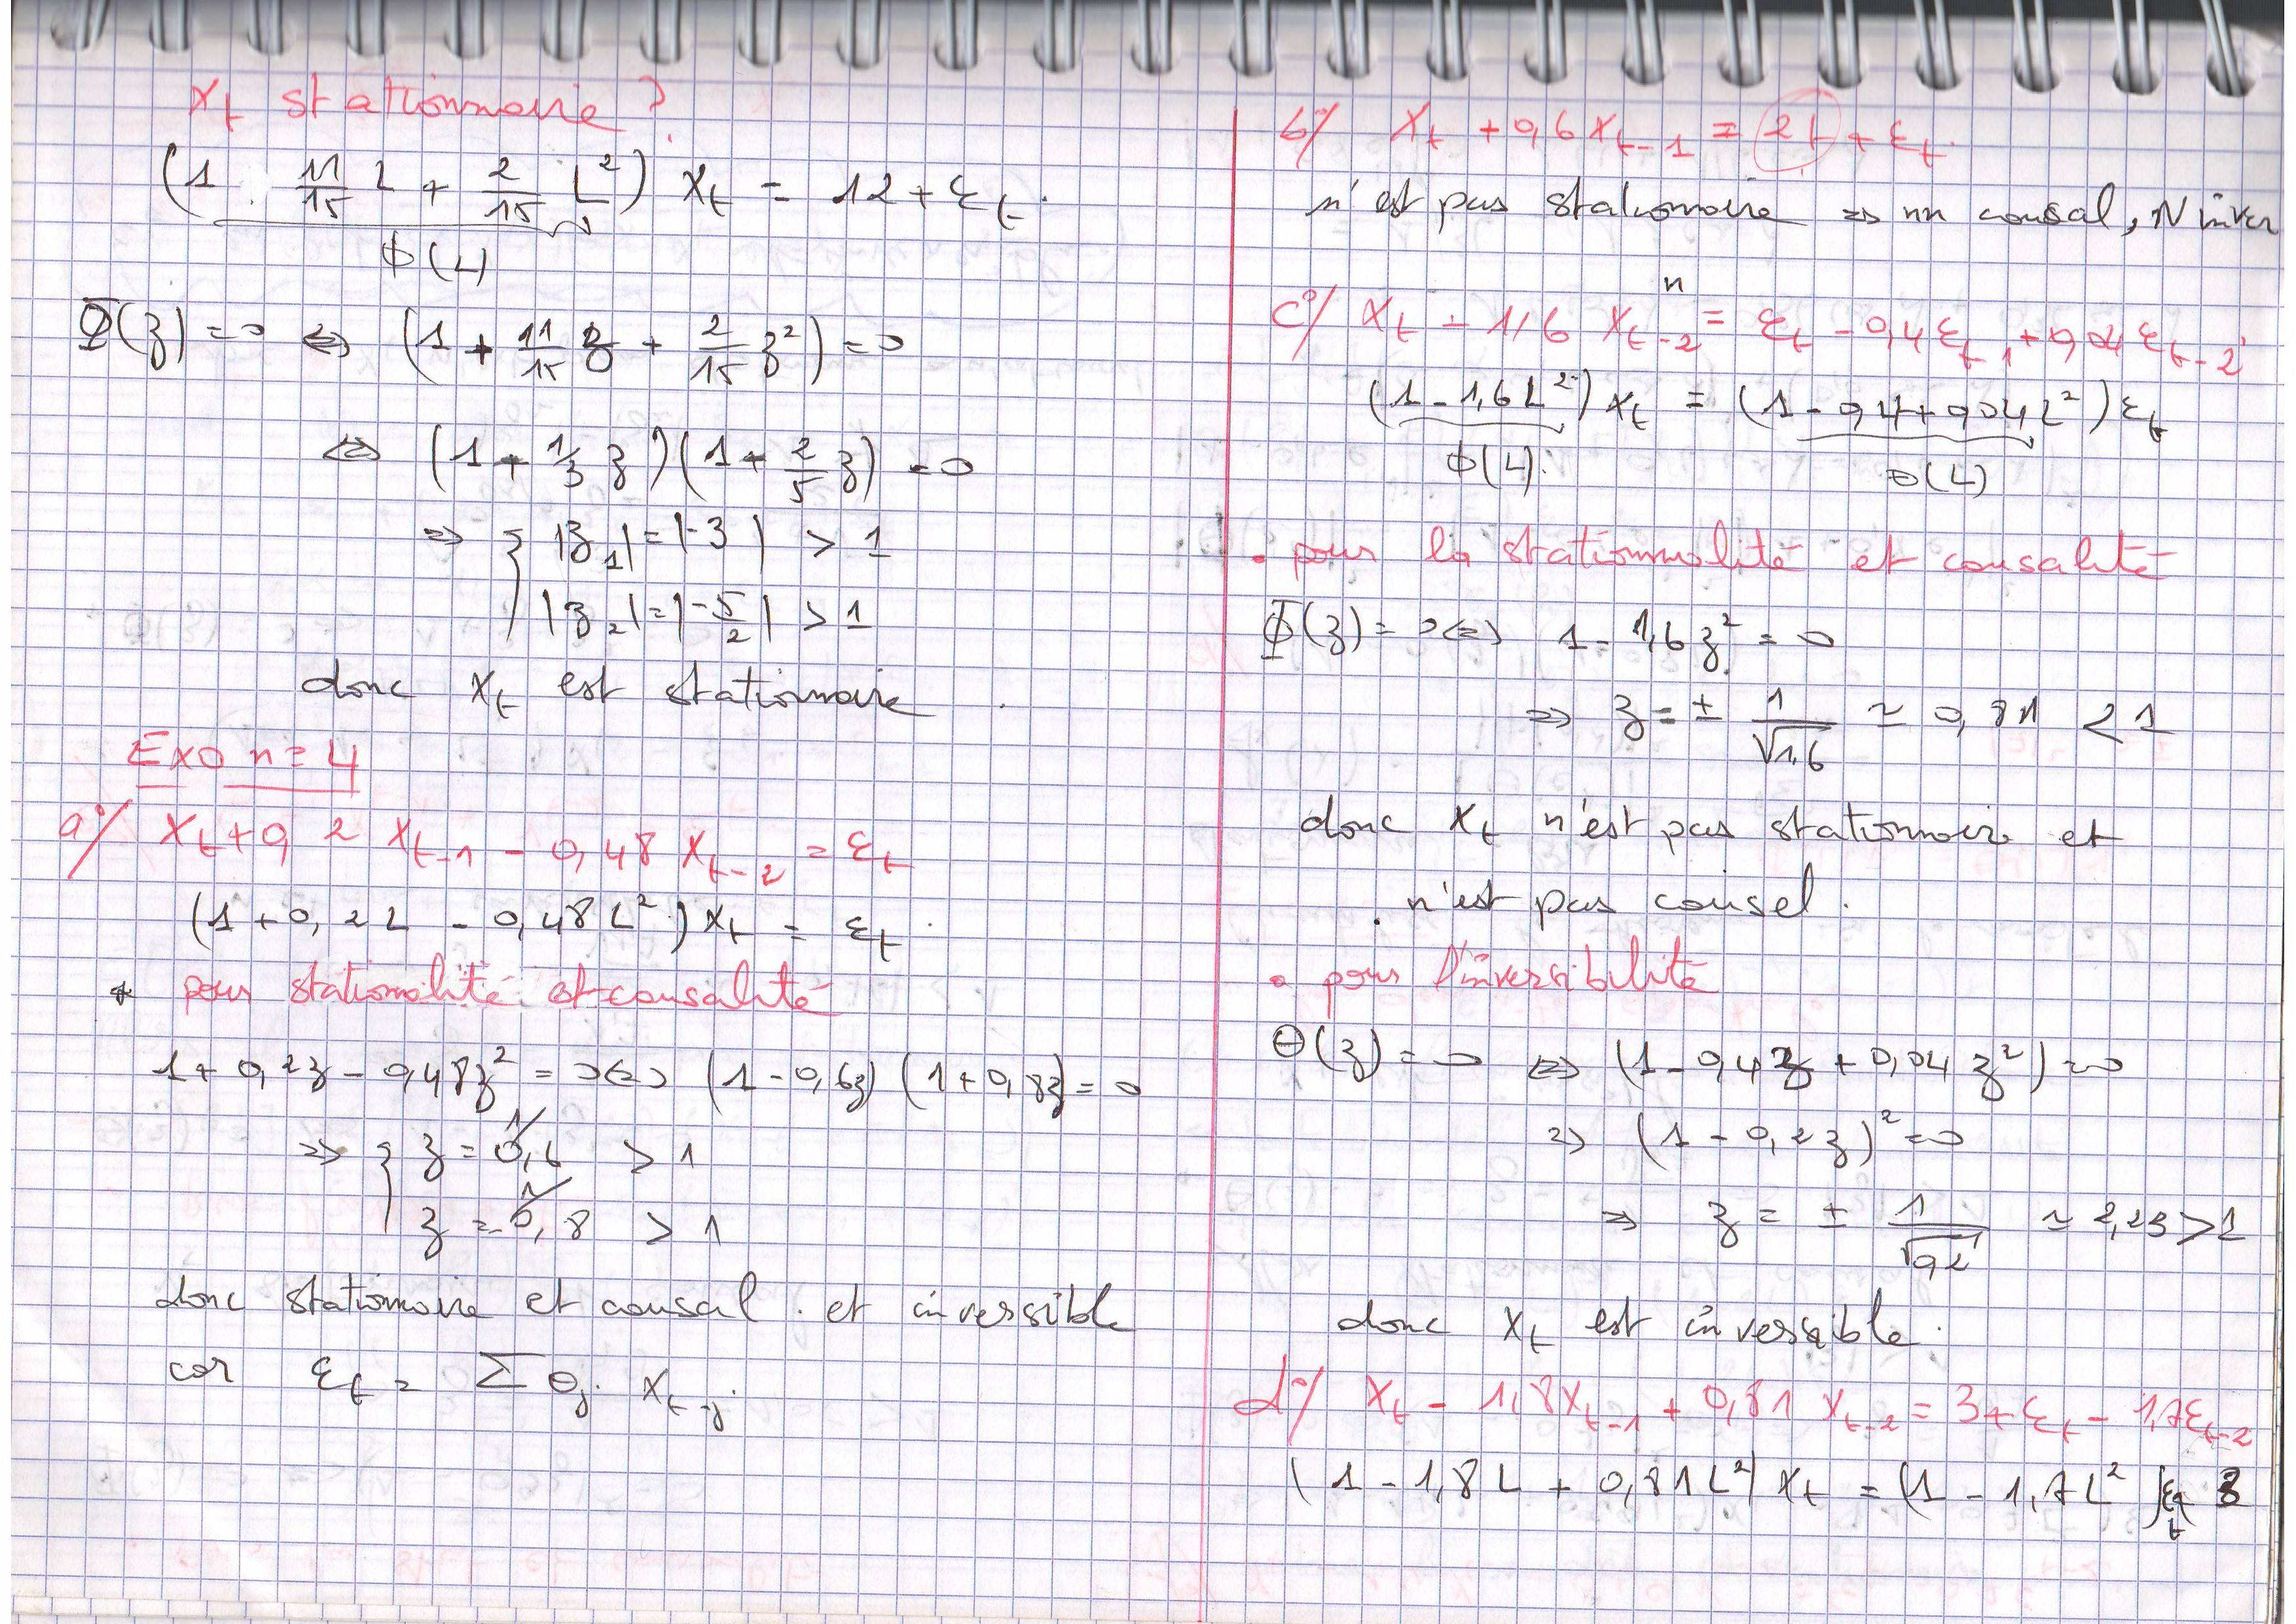 X_t stationnaire ?
(1 . 11/15 L + 2/15 L²) X_t = 12 + ε_t .
ϕ(L)
Φ(z) = 0 ⇔ (1 + 11/15 z + 2/15 z²) = 0
⇔ (1 + 1/3 z)(1 + 2/5 z) = 0
⇒ { |z_1| = |-3| > 1
|z_2| = |-5/2| > 1
donc X_t est stationnaire .
Exo n = 4
a°/ X_t + 0,2 X_t-1 - 0,48 X_t-2 = ε_t
(1 + 0,2 L - 0,48 L²) X_t = ε_t .
* pour stationalité et causalité
1 + 0,2z - 0,48z² = 0 ⇔ (1 - 0,6z) (1 + 0,8z) = 0
⇒ { z = 1/0,6 > 1
z = 1/0,8 > 1
donc stationnaire et causal . et inversible
car ε_t = Σ θ_j . X_t-j .
b°/ X_t + 0,6 X_t-1 = 2t + ε_t .
n'est pas stationnaire ⇒ nn causal, N inver
n
c°/ X_t - 1,6 X_t-2 = ε_t - 0,4 ε_t-1 + 0,04 ε_t-2
(1 - 1,6 L²) X_t = (1 - 0,4 + 0,04 L²) ε_t
ϕ(L) . θ(L)
• pour la stationnalité et causalité
Φ(z) = 0 ⇔ 1 - 1,6 z² = 0
⇒ z = ± 1/√1,6 ≃ 0,81 < 1
donc X_t n'est pas stationnaire et
. n'est pas causel .
• pour l'inversibilité
Θ(z) = 0 ⇔ (1 - 0,4z + 0,04 z²) = 0
⇒ (1 - 0,2 z)² = 0
⇒ z = ± 1/√0,2 ≃ 2,23 > 1
donc X_t est inversible .
d°/ X_t - 1,8 X_t-1 + 0,81 X_t-2 = 3 + ε_t - 1,7 ε_t-2
(1 - 1,8 L + 0,81 L²) X_t = (1 - 1,7 L²) ε_t 3